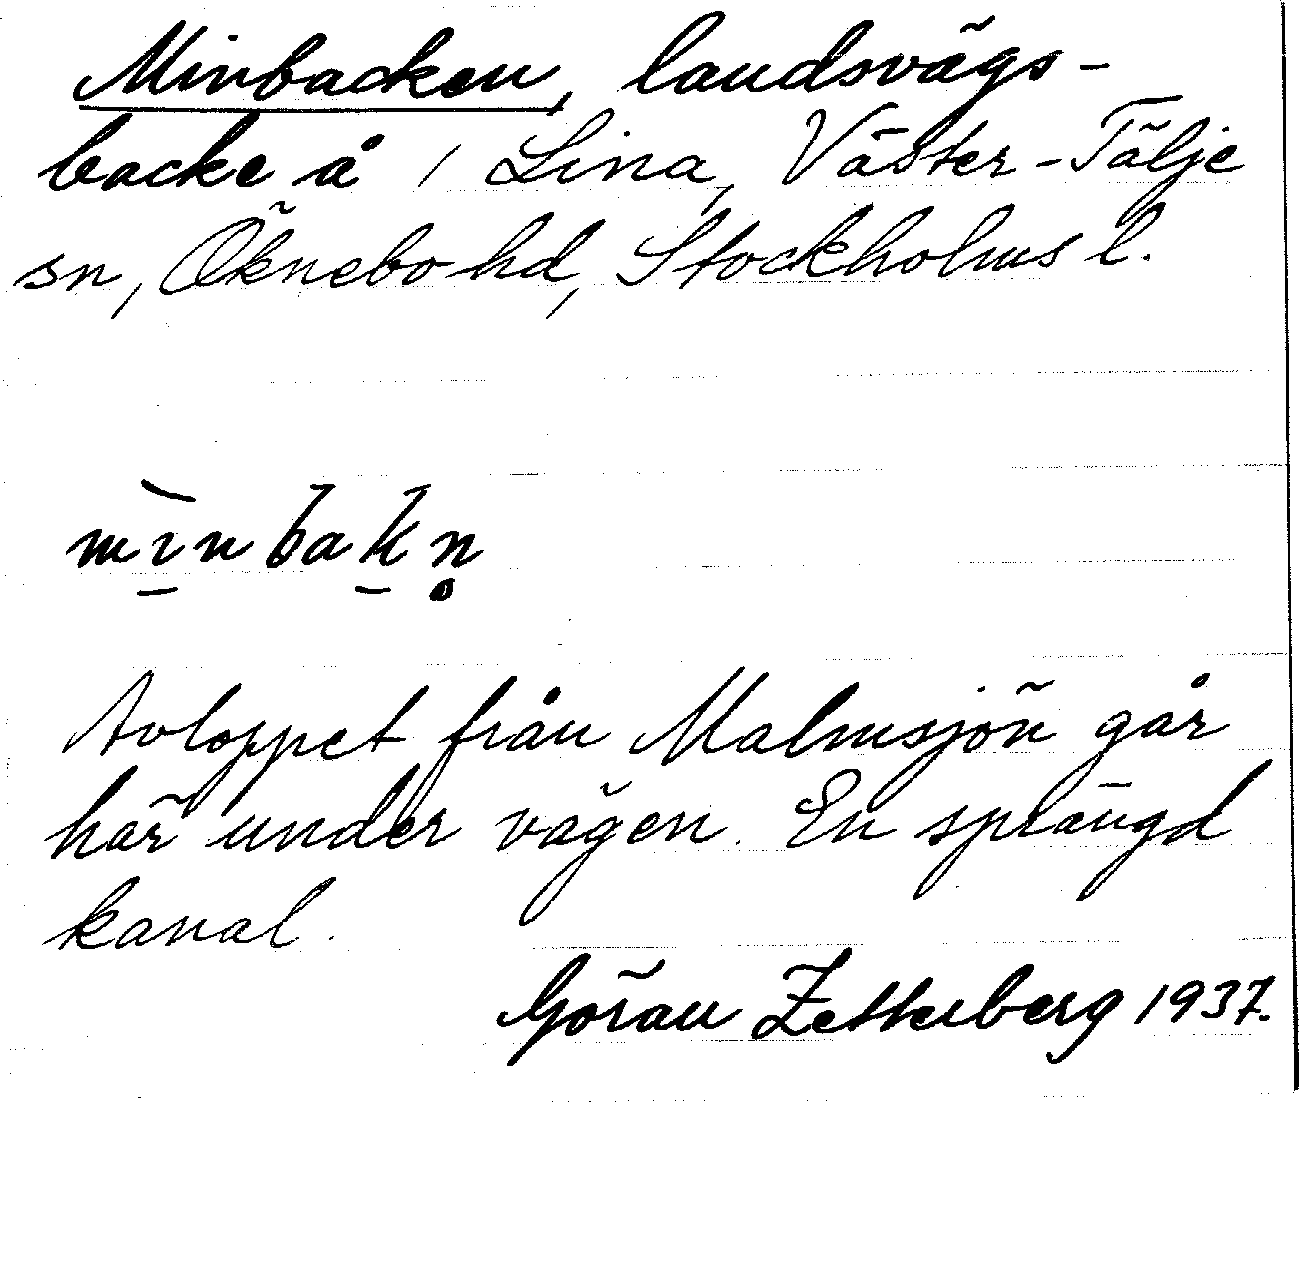 Minbacken, landsvägs-
backe å 1 Lina, Väster-Tälje
sn, Öknebo hd, Stockholms l.
mı̱̀nbaḵn̥
Avloppet från Malmsjön går
här under vägen. En sprängd
kanal.
Göran Zetterberg 1937.